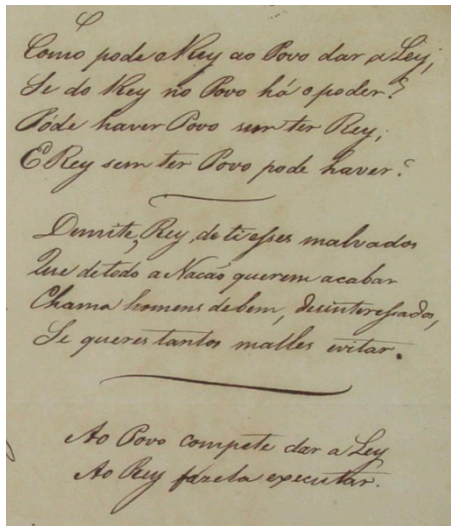 Como pode o Rey ao Povo dar a Ley,
Se do Rey no Povo há o poder?
Póde haver Povo sem ter Rey;
E Rey sem ter Povo pode haver?
Demite, Rey, de ti esses malvados
Que de todo a Nacão querem acabar
Chama homens de bem, desinteressados,
Se queres tantos malles evitar.
Ao Povo compete dar a Ley
Ao Rey fazela executar.